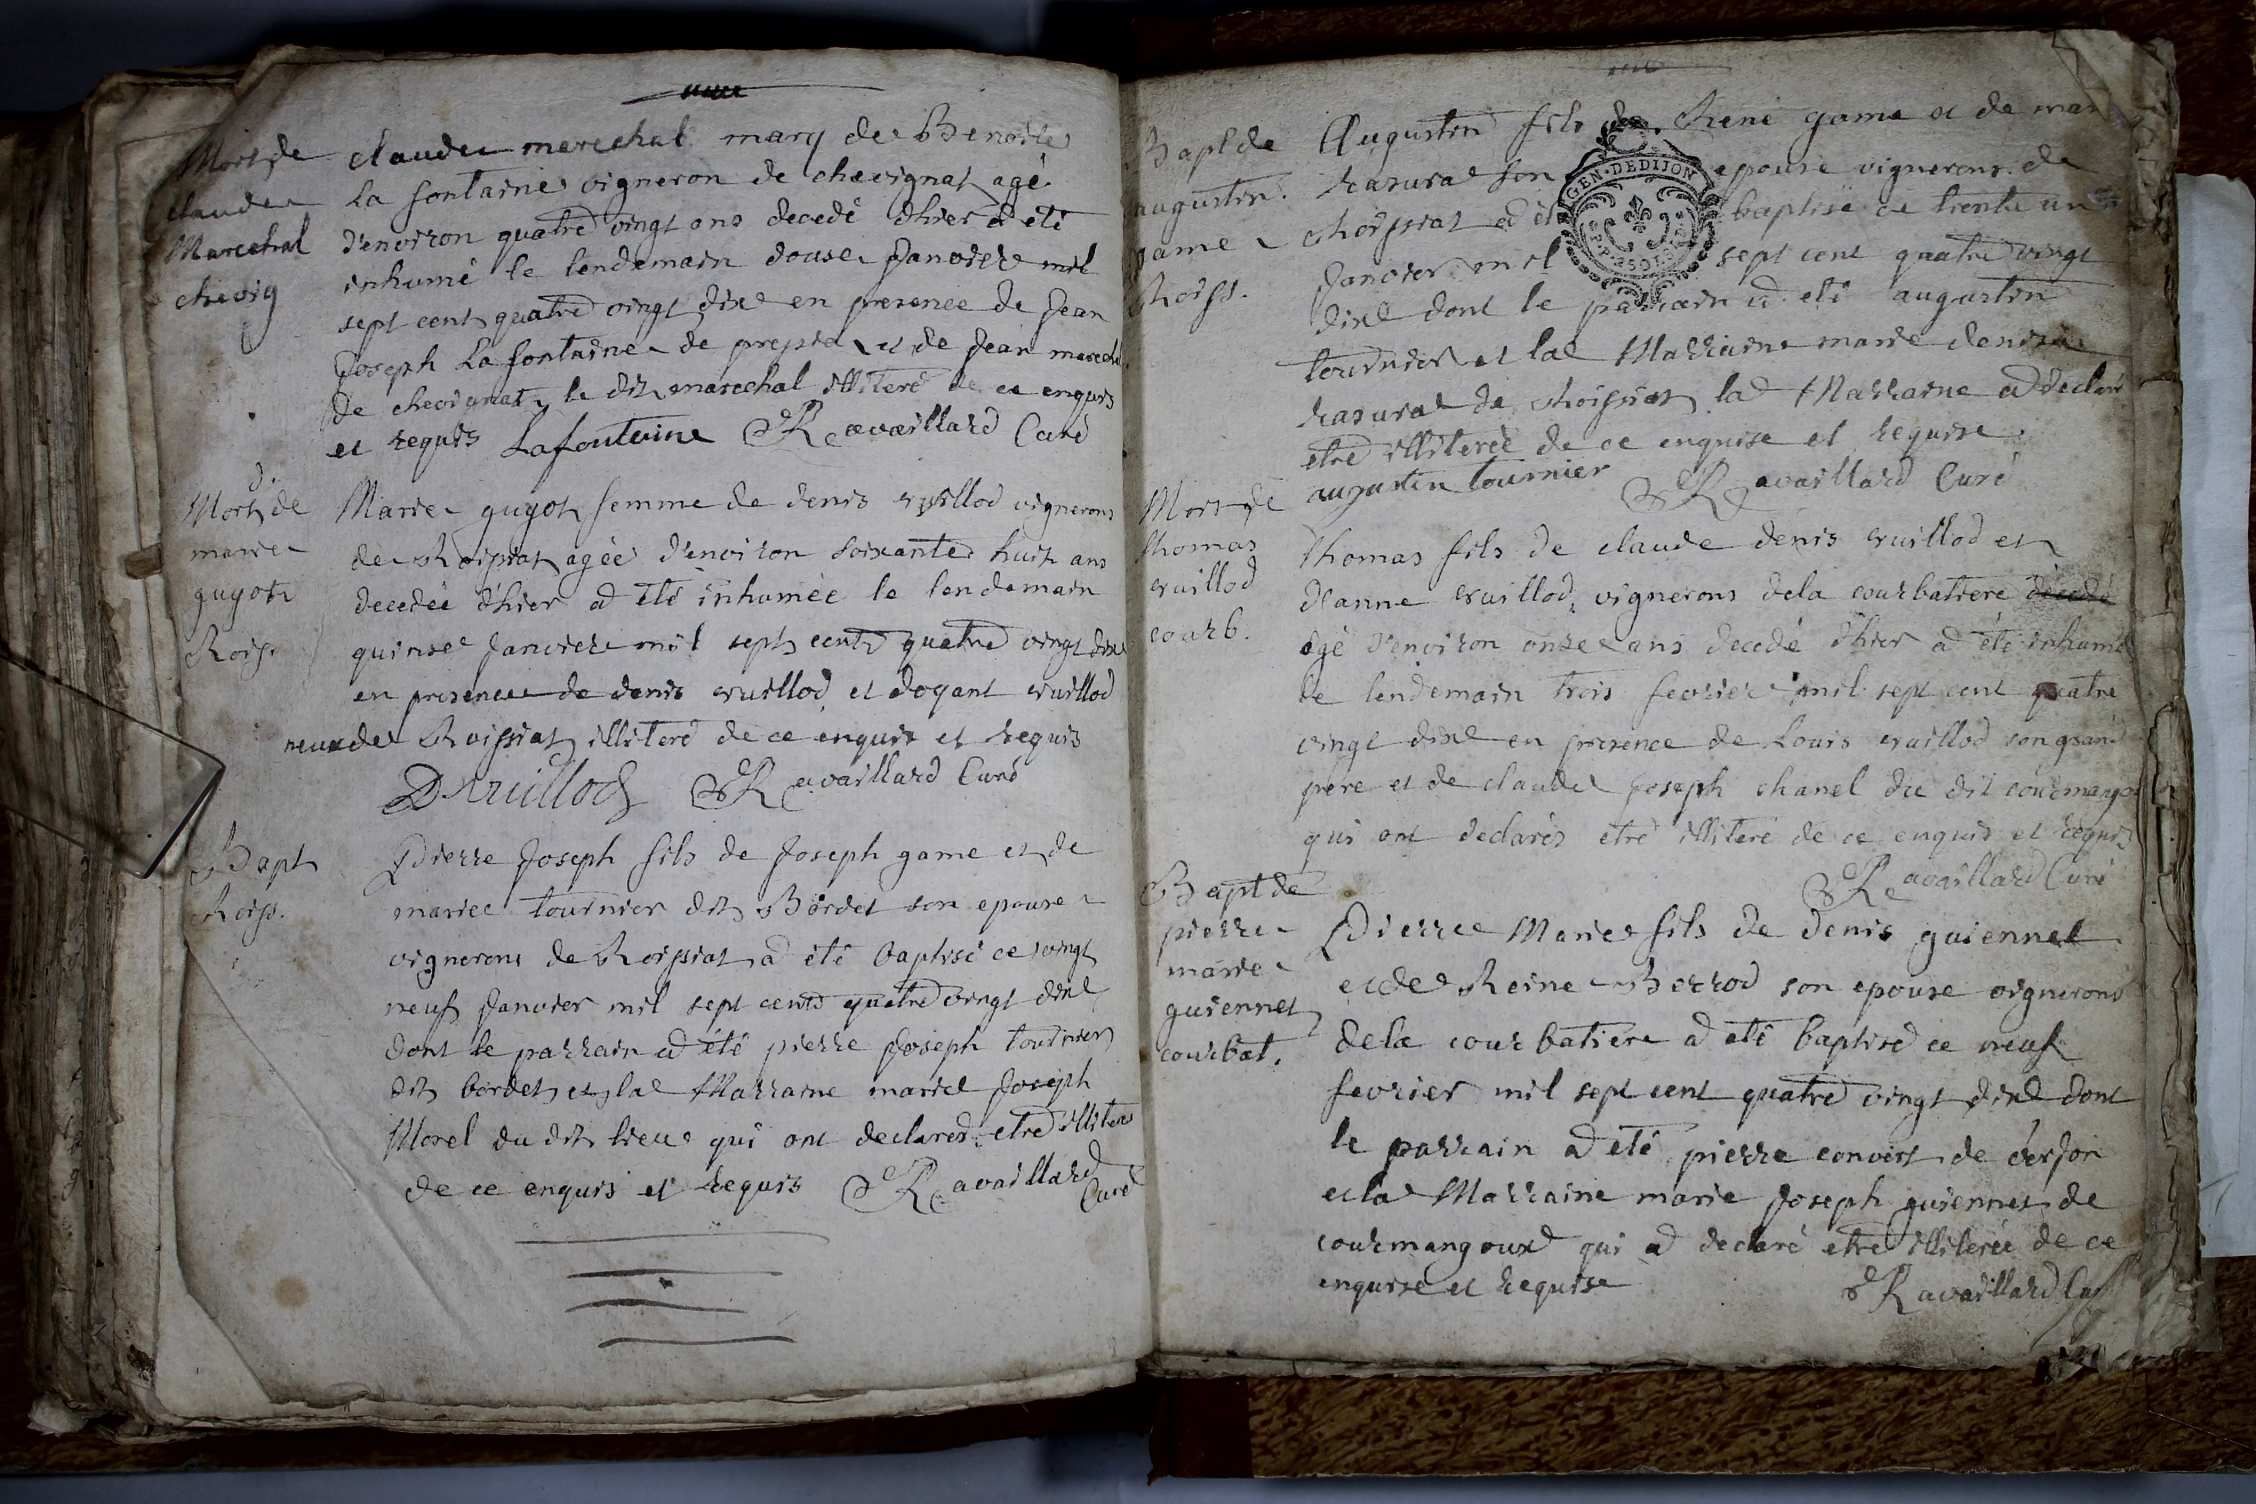 Mort de
claude
Marechal
chevig
claude marechal mary de Benoite
La fontaine vigneron de chevignat agé
d'environ quatre vingt ans decedé d'hier a été
inhumé le lendemain douse Janvier mil
sept cent quatre vingt dix en presence de Jean
Joseph La fontaine de pressia et de Jean marechal
de chevignat le dit marechal illiteré de ce enquis
et requis Lafontaine Ravaillard Curé
Mort de
marie
guyot
Roiss.
Marie guyot femme de denis vuillod vignerons
de Roissiat agée d'environ soixante huit ans
decedée d'hier a été inhumée le lendemain
quinse Janvier mil sept cent quatre vingt dix
en presence de denis vuillod et doyant vuillod
neveu de Roissiat illiteré de ce enquis et requis
D vuillod Ravaillard Curé
Bapt
Roiss.
Pierre Joseph fils de Joseph game et de
marie tournier dit Bordet son epouse
vignerons de Roissiat a été baptisé ce vingt
neuf Janvier mil sept cent quatre vingt dix
dont le parrain a été pierre Joseph tournier
dit bordet et la Marraine marie Joseph
Morel du dit lieu qui ont declarés etre illiteré
de ce enquis et requis Ravaillard
Curé
Bapt de
augustin
game
Roiss.
Augustin fils de René game et de marie
rasura son epouse vignerons de
Roissiat a été baptisé ce trente un
Janvier mil sept cent quatre vingt
dix dont le parrain a été augustin
tournier et la Marraine marie denise
rasura de Roissiat la Marraine a declaré
etre illiterée de ce enquise et requise
augustin tournier Ravaillard Curé
GEN·DE DIJON
Mort de
thomas
vuillod
courb.
Thomas fils de claude denis vuillod et
d'anne vuillod vignerons de la courbatiere decedé
agé d'environ onse ans decedé d'hier a été inhumé
le lendemain trois fevrier mil sept cent quatre
vingt dix en presence de Louis vuillod son grand
pere et de claude Joseph chanel du dit courmangoux
qui ont declarés etre illiteré de ce enquis et requis
Ravaillard Curé
Bapt de
pierre
marie
guiennet
courbat.
Pierre Marie fils de denis guiennet
et de Reine Berrod son epouse vignerons
de la courbatiere a été baptisé ce neuf
fevrier mil sept cent quatre vingt dix dont
le parrain a été pierre convert de verjon
et la Marraine marie Joseph guiennet de
courmangoux qui a declaré etre illiterée de ce
enquise et requise
Ravaillard